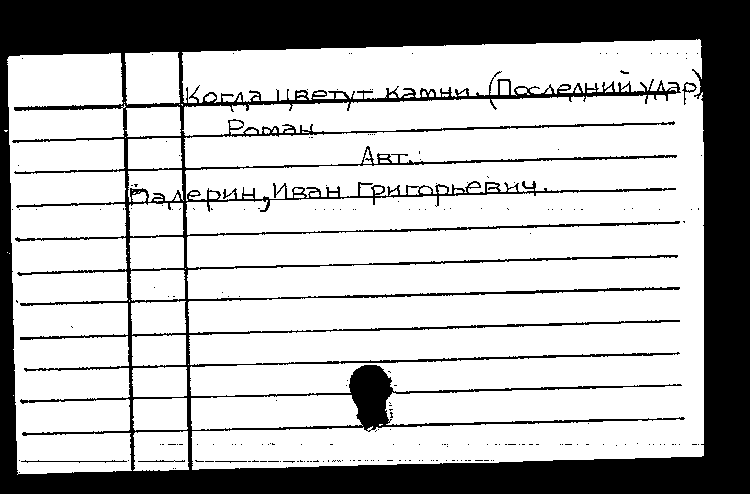 Когда цветут камни. (Последний удар)
Роман.
Авт.:
Падерин, Иван Григорьевич.